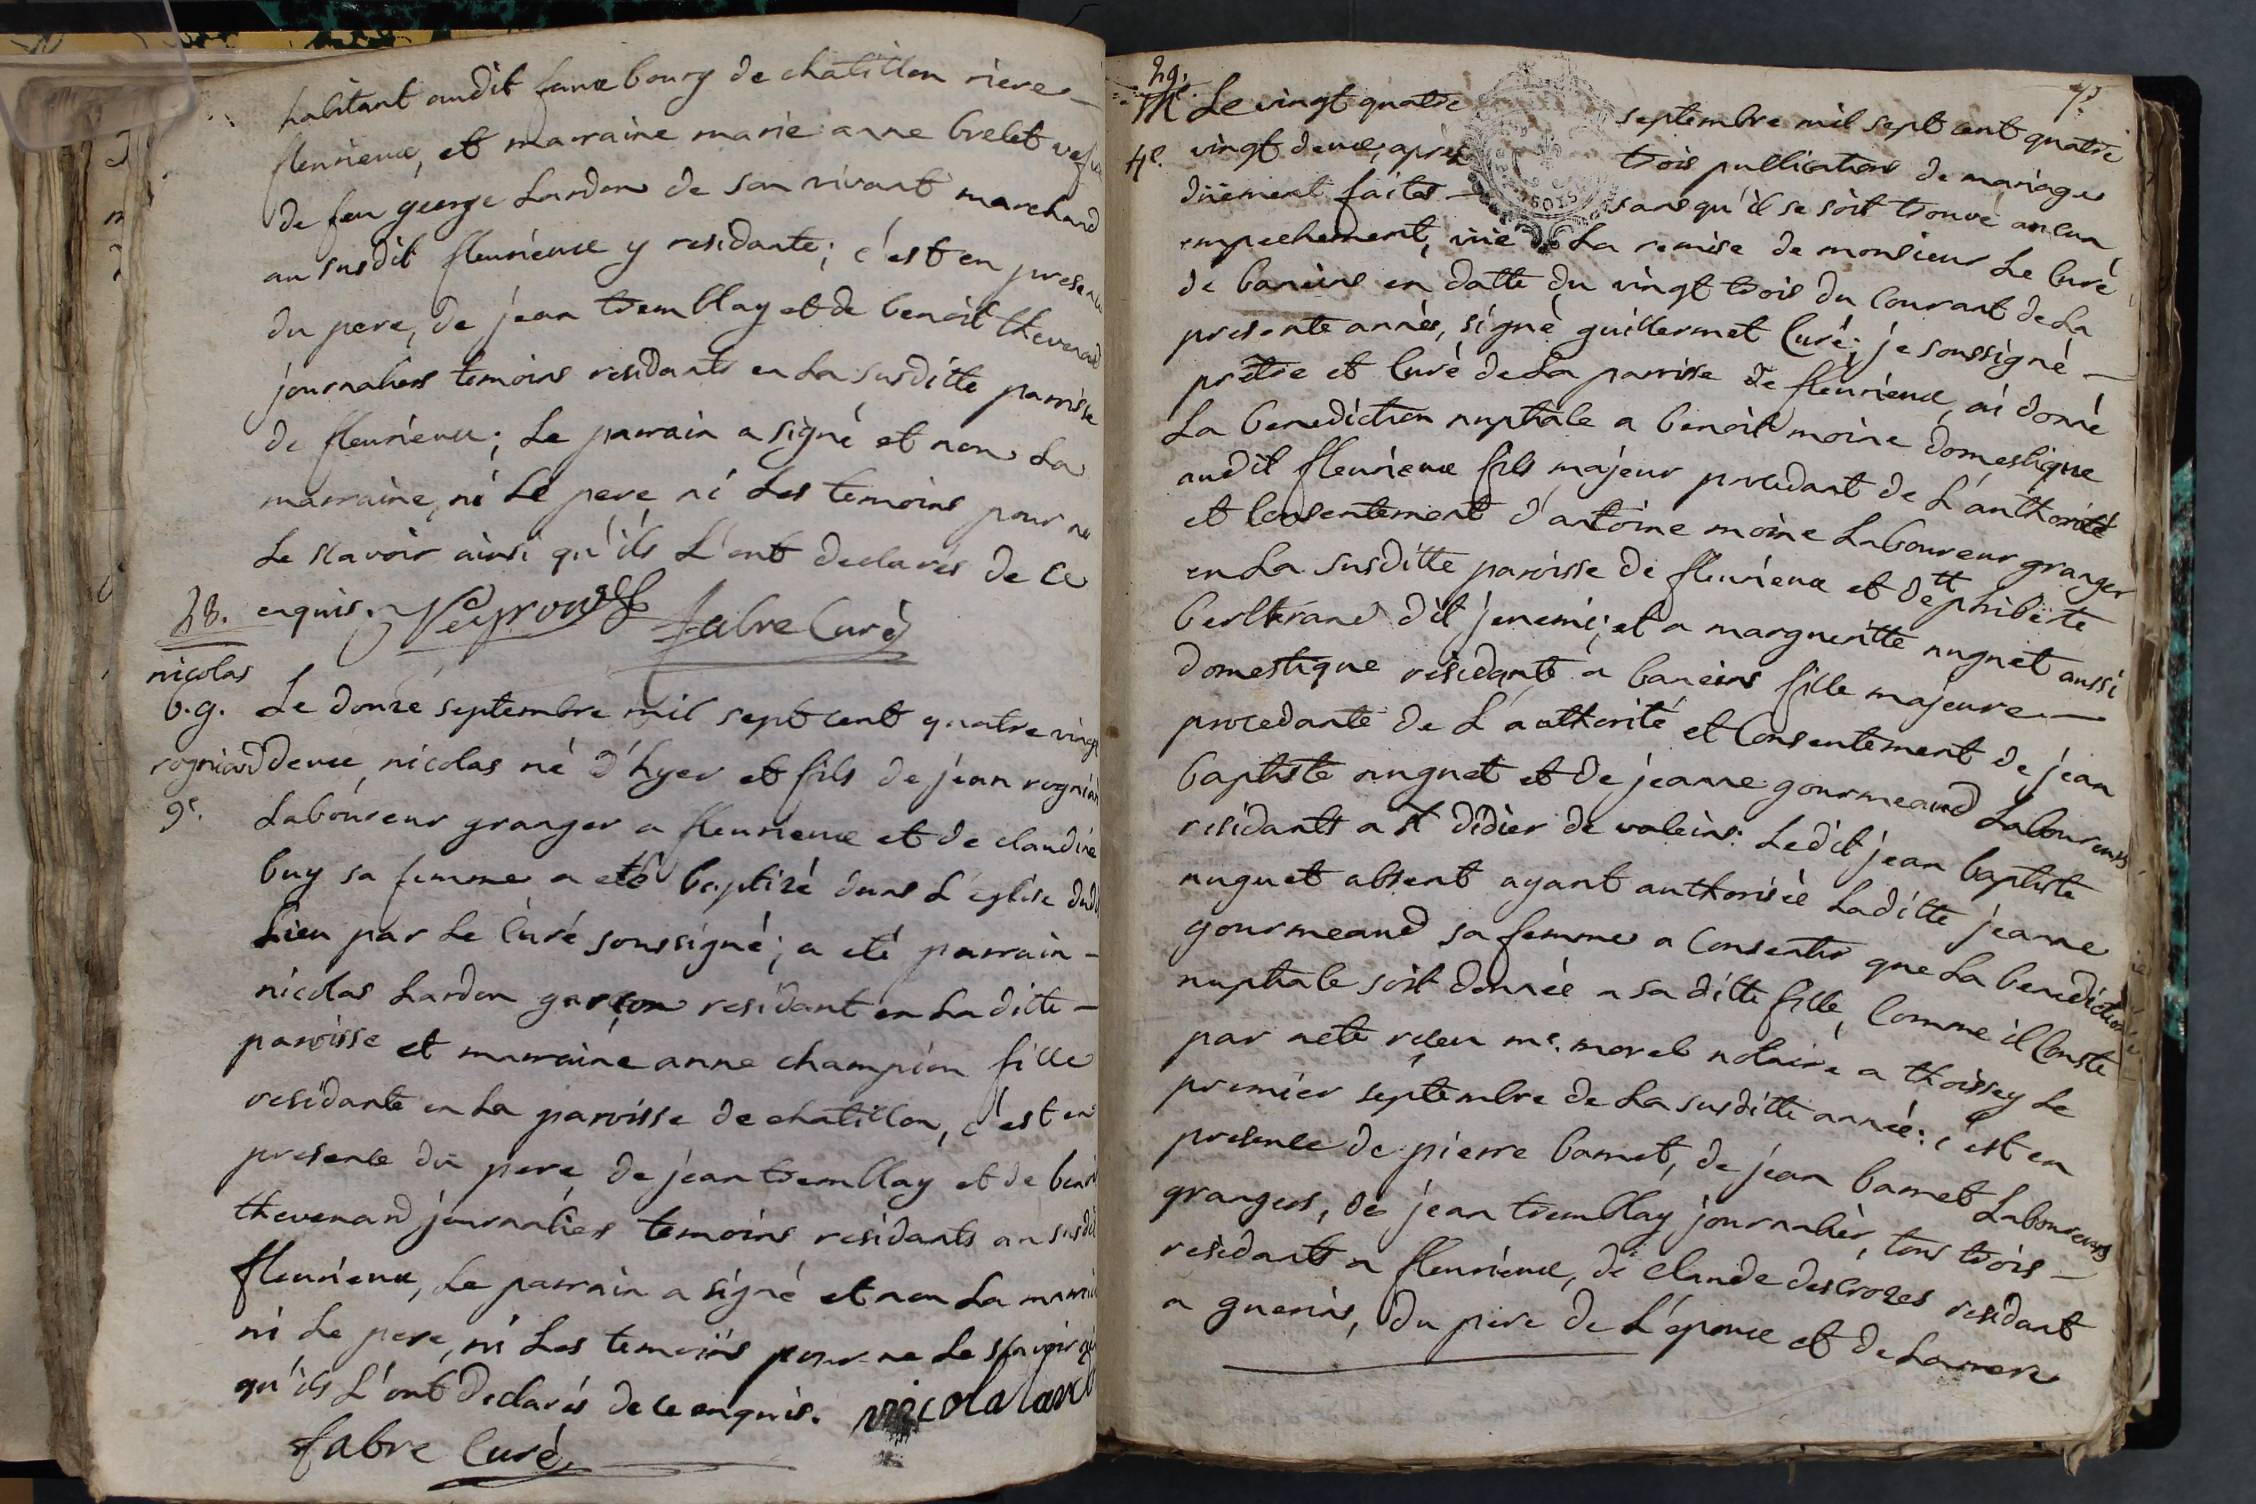 habitant audit fauxbourg de chatillon riere
fleurieux, et marraine marie anne brelet
de feu george Lardon de son vivant marchand
au susdit fleurieux y residante; c'est en presence
du pere, de jean tremblay et de benoit thevenard
journaliers temoins residants en La susditte parroisse
de fleurieux; Le parrain a signé et non La
marraine, ni Le pere ni Les temoins pour ne
Le sçavoir ainsi qu'ils L'ont declarés de ce
28. enquis. fabre Curé
nicolas
b.g. Le douze septembre mil sept cent quatre vingt
rogniard deux nicolas né d'hyer et fils de jean rogniard
9e. Laboureur granger a fleurieux et de claudine
buy sa femme a eté baptizé dans L'eglise dudit
Lieu par Le Curé soussigné; a eté parrain
nicolas Lardon garçon residant en La ditte
paroisse et marraine anne champion fille
residante en La paroisse de chatillon, c'est en
presence du pere de jean tremblay et de benoit
thevenard journaliers temoins residants au susdit
fleurieux, Le parrain a signé et non La marraine
ni Le pere, ni Les temoins pour ne Le sçavoir
qu'ils L'ont declarés de ce enquis. nicola lard
fabre Curé
29.
Me. Le vingt quatre septembre mil sept cent quatre
4e. vingt deux, après trois publications de mariages
düement faites sans qu'il se soit trouvé aucun
empechement, vüe La remise de monsieur Le Curé
de baneins en datte du vingt trois du Courant de La
presente année, signé guillermet Curé; je soussigné
prêtre et Curé de La parroisse de fleurieux, ai donné
La benediction nuptiale a benoit moine domestique
audit fleurieux fils majeur procedant de L'authorité
et Consentement d'antoine moine Laboureur granger
en La susditte paroisse de fleurieux et dett philiberte
berltrand dit jenemi; et a margueritte nuguet aussi
domestique residante a baneins fille majeure
procedante de L'authorité et Consentement de jean
baptiste nuguet et de jeanne gourmeaud Laboureurs
residants a st didier de valeins: Ledit jean baptiste
nuguet absent ayant authorisée Laditte jeanne
gourmeaud sa femme a Consentir que La benediction
nuptiale soit donnée a sa ditte fille, Comme il Conste
par acte reçu me. morel notaire a thoissey Le
premier septembre de La susditte année: c'est en
presence de pierre bamet, de jean bamet Laboureurs
grangers, de jean tremblay journalier, tous trois
residants a fleurieux, de Claude descrozes residant
a guerins, du pere de L'epoux et de La mere